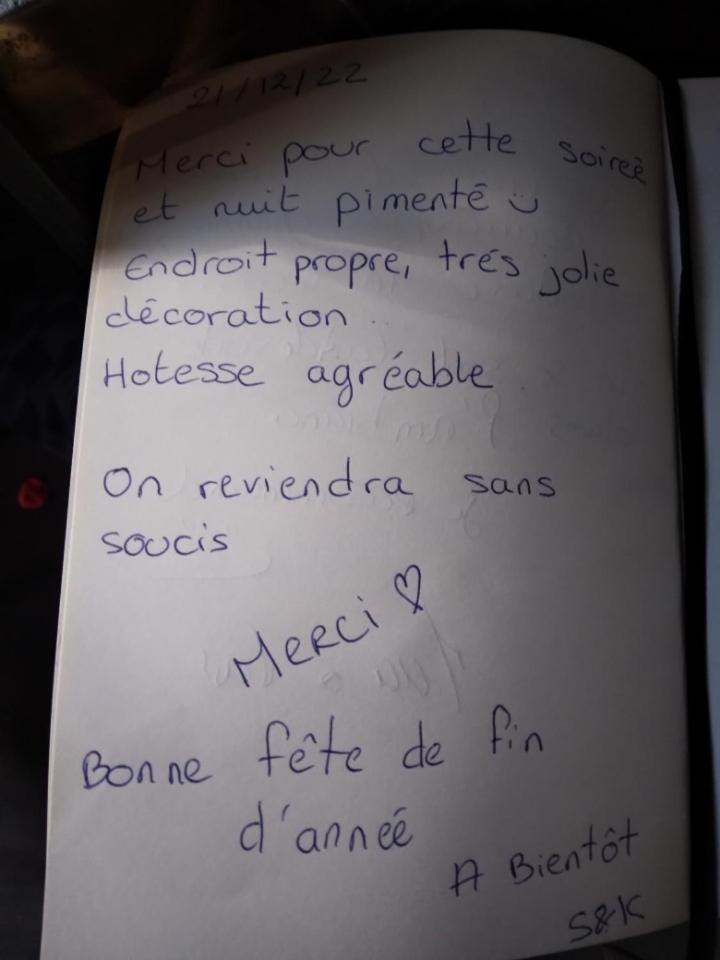 21/12/22
Merci pour cette soireé
et nuit pimenté
Endroit propre, trés jolie
décoration
Hotesse agréable
On reviendra sans
soucis
Merci ♡
Bonne fête de fin
d'anneé
A Bientôt
S&K